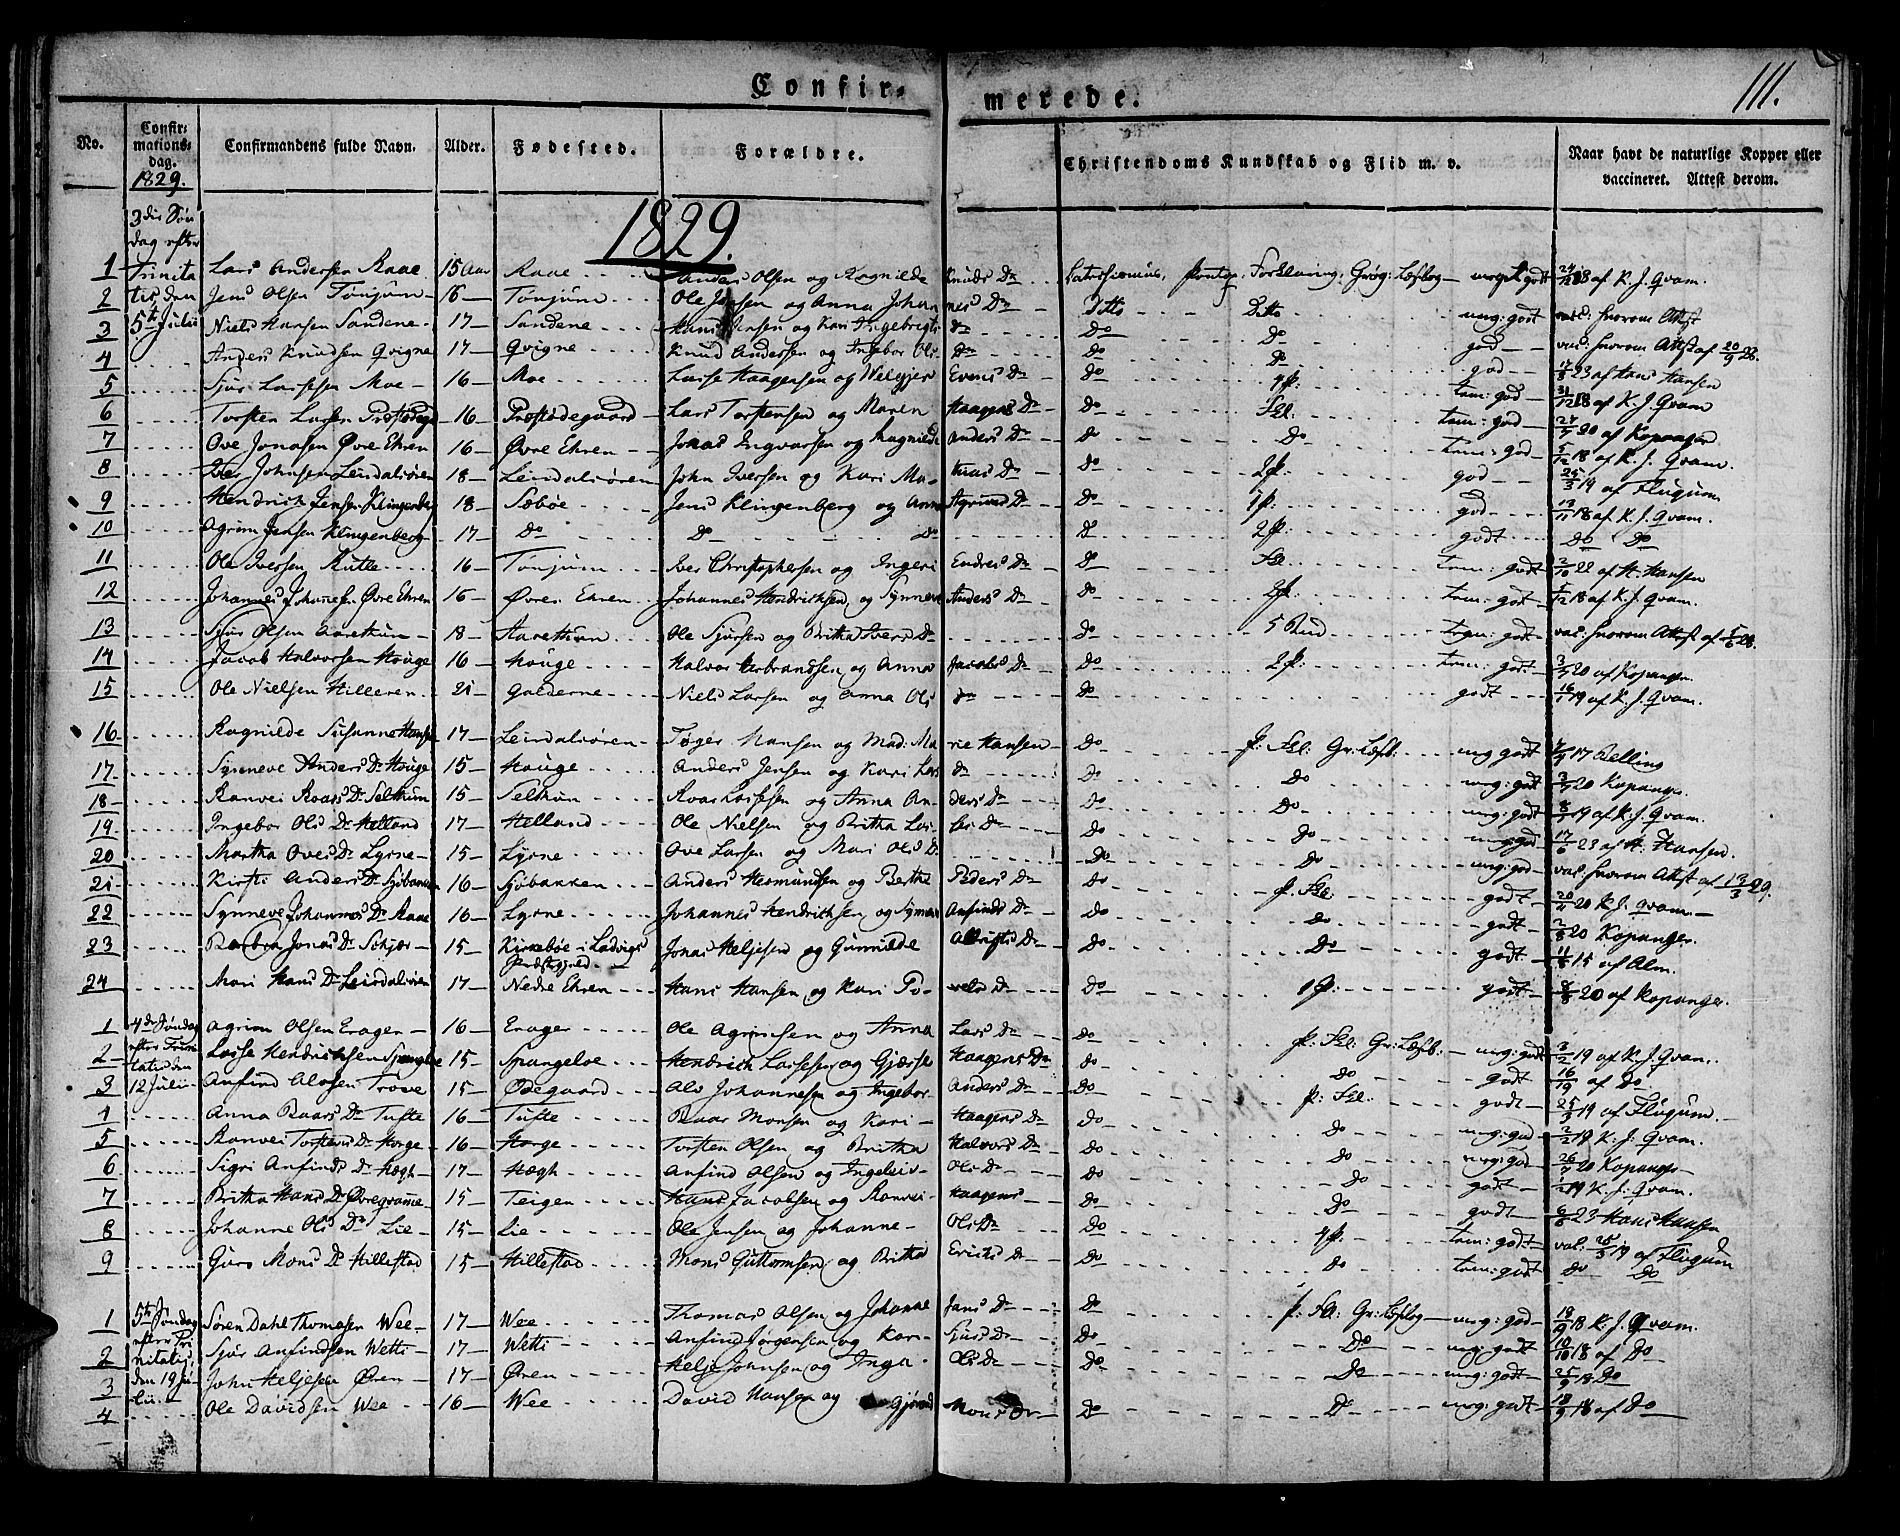 Confirmerede.
111.
No. Confirmationsdag. 1829. Confirmandens fulde Navn. Alder. Fødested. Forældre. Christendoms Kundskab og Flid m. v. Naar havt de naturlige Kopper eller vaccineret. Attest derom.
1829.
3die Søndag efter Trinitatis den 5te Julii
1 Lars Andersen Raae 15 Aar Raae Anders Olsen og Ragnilde Knuds Dr 18 af K. J. Qvam.
2 Jens Olsen Tønjum 16 Tønjum Ole Jensen og Anna Johannes Dr Ditto Ditto
3 Niels Hansen Sandene 17 Sandene Hans Jensen og Kari Ingebrigts Dr Do Do vac: hvorom Attest
4 Anders Knudsen Qvigne 17 Qvigne Knud Andersen og Ingebor Ols Dr Do Do god vac: hvorom Attest af 20/9 28.
5 Sjur Larsen Moe 16 Moe Lasse Haagensen og Welgjer Evens Dr Do god 23 af Hans Hansen
6 Torsten Larsen 16 Præstedegaard Lars Torstensen og Maren Haagens Dr Do tem: god 18 af K. J. Qvam
7 Ove Jonasen Øvre Ehren 16 Øvre Ehren Jonas Ingvarsen og Ragnilde Anders Dr Do Do tem: god 20 af Kopanger
8 Iver Johnsen Leirdalsøren 18 Leirdalsøren John Iversen og Kari Do tem: god 5/12 18 af K. J. Qvam.
9 Hendrich Jensen Klingenberg 18 Sæbøe Jens Klingenberg og Anna Agrims Dr Do god 25/3 19 af Flugum.
10 Agrim Jensen Klingenberg 17 Do Do Do Do god 18 af K. J. Qvam.
11 Ole Iversen Kutle 16 Tønjum Iver Christophersen og Ingeri Endres Dr Do godt Do Do
12 Johannes Johannesen Øvre Ehren 16 Øvre Ehren Johannes Hendrichsen og Synneve Anders Dr Do tem: godt 22 af H. Hansen
13 Sjur Olsen Aarethun 18 Aarethun Ole Sjursen og Britha Ivers Dr Do tem: godt 18 af K. J. Qvam.
14 Jacob Halvorsen Houge 16 Houge Halvor Herbrandsen og Anna Jacobs Dr Do godt vac: hvorom Attest
15 Ole Nielsen Hilleren 21 Galderne Niels Larsen og Anna Ols Dr Do godt 20 af Kopanger. 19 af K. J. Qvam.
16 Ragnilde Susanne Hansen 17 Leirdalsøren Tøger Hansen og Mad: Marie Hansen Do mg godt 17
17 Synneve Anders Dr Houge 15 Houge Anders Jensen og Kari Lars Dr Do Do mg: godt 20 Kopanger.
18 Ranvei Roars Dr Selthun 15 Selthun Roar Lassesen og Anna Anders Dr Do Do mg: godt 19 af K. J. Qvam.
19 Ingebor Ols Dr Helland 17 Helland Ole Nielsen og Britha Do Do 17/6 23 af H. Hansen.
20 Martha Oves Dr Lysne 15 Lysne Ove Larsen og Mari Ols Dr Do Do mg: god vac: hvorom Attest af 13/3 29.
21 Kirsti Anders Dr Sjøbakken 16 Sjøbakken Anders Hermundsen og Berthe Peders Dr Do godt 20 K. J. Qvam.
22 Synneve Johannes Dr Raae 16 Lysne Johannes Hendrichsen og Synneve Anfinds Dr Do Do godt 20 Kopanger.
23 Barbra Jonas Dr Schjær 15 Kirkebøe i Ladvigs Præstegjeld Jonas Heljesen og Gunnilde Do Do godt 15 af Alm.
24 Mari Hans Dr Leirdalsøren 17 Nedre Ehren Hans Hansen og Kari Povels Dr Do godt 20 af Kopanger.
4de Søndag efter Trinitatis den 12 Julii
1 Agrim Olsen Erager 16 Erager Ole Agrimsen og Anna Lars Dr Do mg: godt 19 af K. J. Qvam.
2 Lasse Hendrichsen Spangeloe 15 Spangeloe Hendrich Lassesen og Gjærse Haagens Dr Do Do godt af Do
3 Anfind Alosen Trove 15 Ødegaard Alv Johannesen og Ingebor Anders Dr Do godt 25/3 19 af Flugum.
4 Anna Roars Dr Tufte 16 Tufte Roar Monsen og Kari Haagens Dr Do Do mg: god 19 K. J. Qvam.
5 Ranvei Torstens Dr Horge 16 Horge Torsten Olsen og Britha Halvors Dr Do Do mg: god 20 Kopanger
6 Sigri Anfinds Dr Hægh 17 Hægh Anfind Olsen og Ingeleiv Ols Dr Do Do godt 19 K. J. Qvam.
7 Britha Hans Dr 15 Teigen Hans Jacobsen og Ranvei Haagens Do Do godt 23 Hans Hansen
8 Johanne Ols Dr Lie 15 Lie Ole Jensen og Johanne Ols Dr Do tem: godt vac: 25/3 19 af Flugum
9 Guro Mons Dr Hillestad 15 Hillestad Mons Guttormsen og Britha Eriks Dr Do Do tem: godt Do Do
5te Søndag efter Trinitatis, den 19 Julii.
1 Søren Dahl Thomasen Wee 17 Wee Thomas Olsen og Johanne Jans Dr Do mg: god 18 K. J. Qvam.
2 Sjur Anfindsen Wetti 17 Wetti Anfind Jørgensen og Kari Sjurs Dr Do Do mg: godt 18 af Do
3 John Heljesen Øren 17 Øren Helje Johnsen og Inga Ols Dr Do Do mg: godt 18 Do
4 Ole Davidsen Wee 16 Wee David Hansen og Gjørond Mons Dr Do Do mg: godt 18 af Do